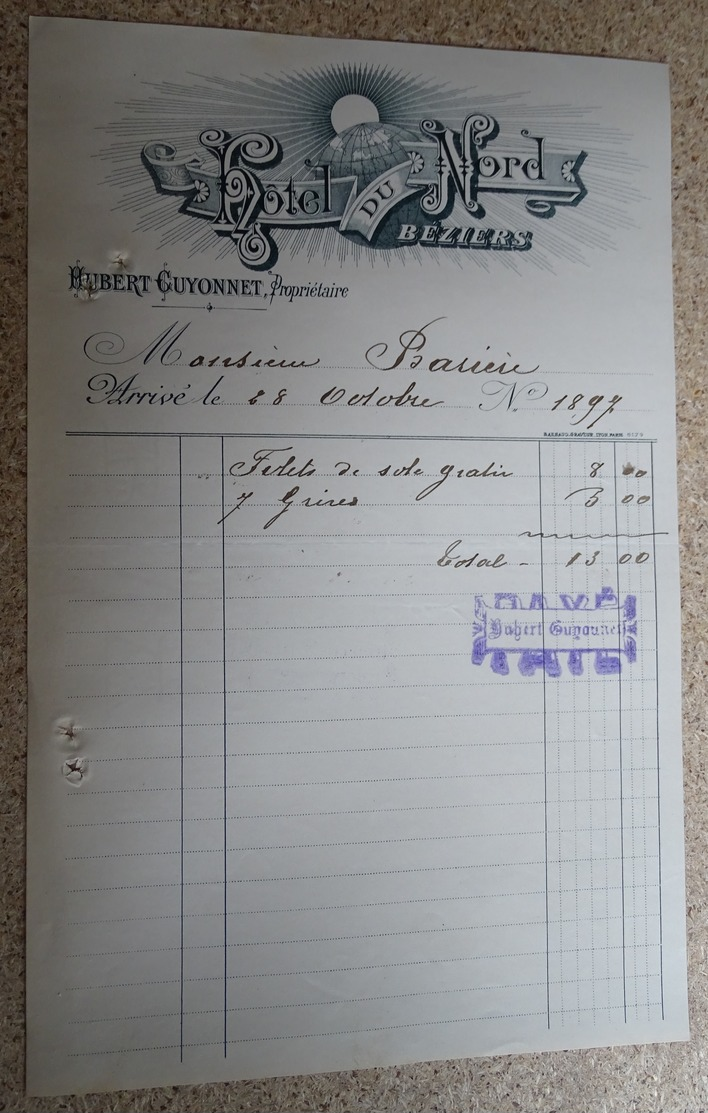 Hôtel DU Nord
BÉZIERS
HUBERT GUYONNET, Propriétaire
Monsieur Barière
Arrivé le 28 Octobre N° 1897
Filets de sole gratin 8 00
7 Grives 5 00
Total - 13 00
PAYÉ
Hubert Guyonnet